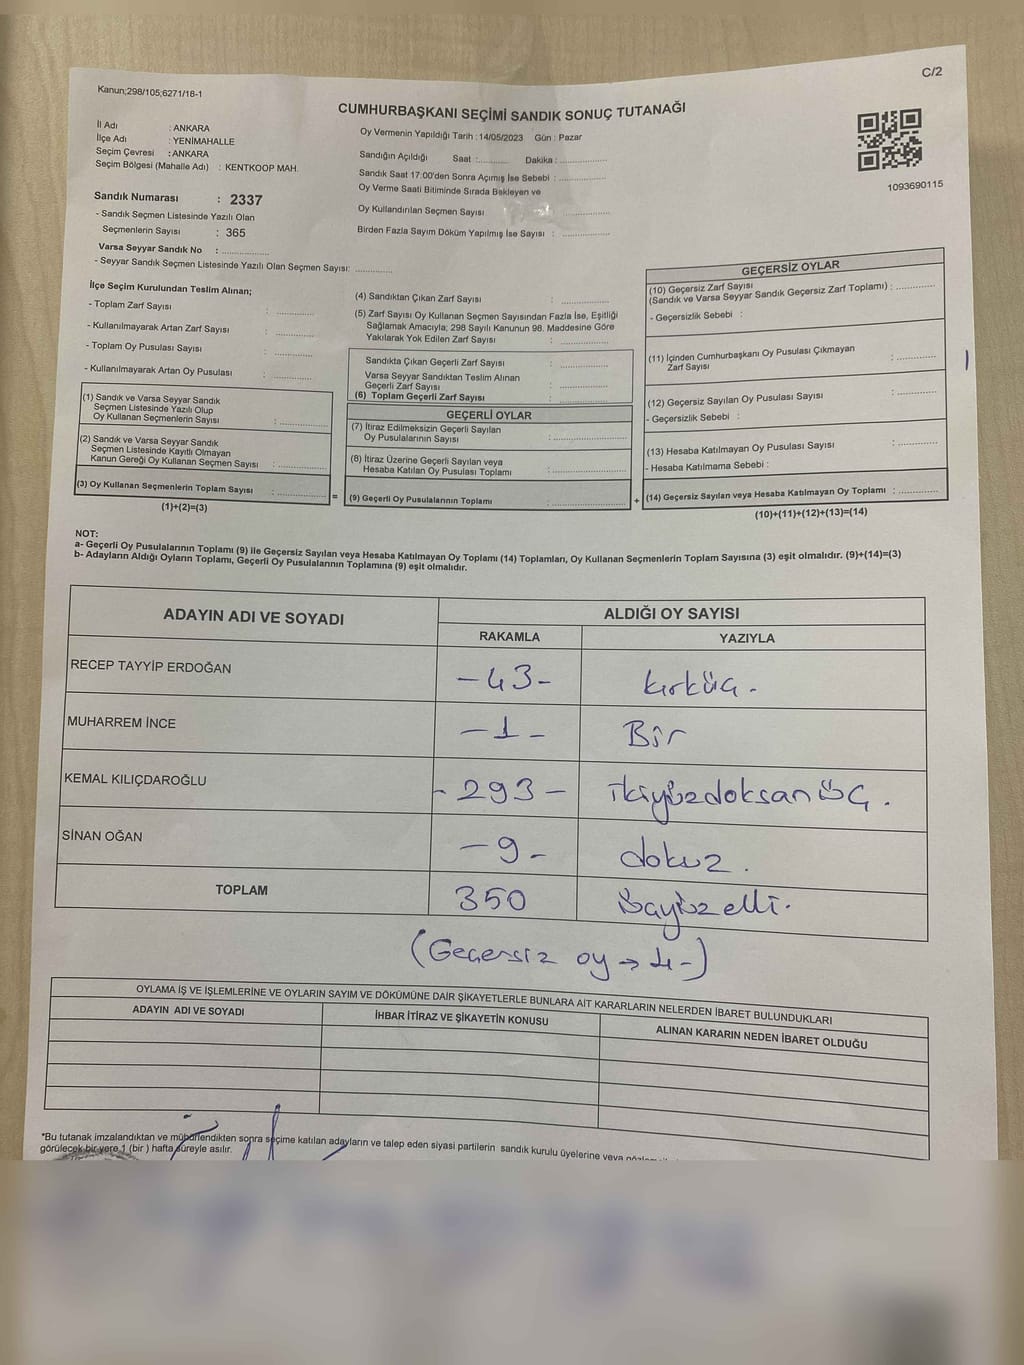 C/2
Kanun;298/105;6271/18-1
CUMHURBAŞKANI SEÇİMİ SANDIK SONUÇ TUTANAĞI
İl Adı : ANKARA
İlçe Adı : YENİMAHALLE
Seçim Çevresi : ANKARA
Seçim Bölgesi (Mahalle Adı) : KENTKOOP MAH.
Oy Vermenin Yapıldığı Tarih : 14/05/2023 Gün : Pazar
Sandığın Açıldığı Saat :........... Dakika : ................
Sandık Saat 17:00'den Sonra Açımış İse Sebebi : ................
Oy Verme Saati Bitiminde Sırada Bekleyen ve
Oy Kullandırılan Seçmen Sayısı ................
Birden Fazla Sayım Döküm Yapılmış İse Sayısı : ................
1093690115
Sandık Numarası : 2337
- Sandık Seçmen Listesinde Yazılı Olan
Seçmenlerin Sayısı : 365
Varsa Seyyar Sandık No : ................
- Seyyar Sandık Seçmen Listesinde Yazılı Olan Seçmen Sayısı: .............
İlçe Seçim Kurulundan Teslim Alınan;
- Toplam Zarf Sayısı : .............
- Kullanılmayarak Artan Zarf Sayısı : .............
- Toplam Oy Pusulası Sayısı : .............
- Kullanılmayarak Artan Oy Pusulası : .............
(1) Sandık ve Varsa Seyyar Sandık
Seçmen Listesinde Yazılı Olup
Oy Kullanan Seçmenlerin Sayısı : ................
(2) Sandık ve Varsa Seyyar Sandık
Seçmen Listesinde Kayıtlı Olmayan
Kanun Gereği Oy Kullanan Seçmen Sayısı : ................
(3) Oy Kullanan Seçmenlerin Toplam Sayısı : ................
(1)+(2)=(3)
(4) Sandıktan Çıkan Zarf Sayısı : ................
(5) Zarf Sayısı Oy Kullanan Seçmen Sayısından Fazla İse, Eşitliği
Sağlamak Amacıyla; 298 Sayılı Kanunun 98. Maddesine Göre
Yakılarak Yok Edilen Zarf Sayısı : ................
Sandıkta Çıkan Geçerli Zarf Sayısı : ................
Varsa Seyyar Sandıktan Teslim Alınan
Geçerli Zarf Sayısı : ................
(6) Toplam Geçerli Zarf Sayısı : ................
GEÇERLİ OYLAR
(7) İtiraz Edilmeksizin Geçerli Sayılan
Oy Pusulalarının Sayısı : ................
(8) İtiraz Üzerine Geçerli Sayılan veya
Hesaba Katılan Oy Pusulası Toplamı : ................
= (9) Geçerli Oy Pusulalarının Toplamı : ................
GEÇERSİZ OYLAR
(10) Geçersiz Zarf Sayısı
(Sandık ve Varsa Seyyar Sandık Geçersiz Zarf Toplamı) : .............
- Geçersizlik Sebebi :
(11) İçinden Cumhurbaşkanı Oy Pusulası Çıkmayan
Zarf Sayısı : .............
(12) Geçersiz Sayılan Oy Pusulası Sayısı : .............
- Geçersizlik Sebebi :
(13) Hesaba Katılmayan Oy Pusulası Sayısı : .............
- Hesaba Katılmama Sebebi :
+ (14) Geçersiz Sayılan veya Hesaba Katılmayan Oy Toplamı : .............
(10)+(11)+(12)+(13)=(14)
NOT:
a- Geçerli Oy Pusulalarının Toplamı (9) ile Geçersiz Sayılan veya Hesaba Katılmayan Oy Toplamı (14) Toplamları, Oy Kullanan Seçmenlerin Toplam Sayısına (3) eşit olmalıdır. (9)+(14)=(3)
b- Adayların Aldığı Oyların Toplamı, Geçerli Oy Pusulalarının Toplamına (9) eşit olmalıdır.
ADAYIN ADI VE SOYADI ALDIĞI OY SAYISI
RAKAMLA YAZIYLA
RECEP TAYYİP ERDOĞAN -43- kırküç.
MUHARREM İNCE -1- Bir
KEMAL KILIÇDAROĞLU -293- ikiyüzdoksanüç.
SİNAN OĞAN -9- dokuz.
TOPLAM 350 üçyüzelli.
(Geçersiz oy → 4-)
OYLAMA İŞ VE İŞLEMLERİNE VE OYLARIN SAYIM VE DÖKÜMÜNE DAİR ŞİKAYETLERLE BUNLARA AİT KARARLARIN NELERDEN İBARET BULUNDUKLARI
ADAYIN ADI VE SOYADI İHBAR İTİRAZ VE ŞİKAYETİN KONUSU ALINAN KARARIN NEDEN İBARET OLDUĞU
*Bu tutanak imzalandıktan ve mühürlendikten sonra seçime katılan adayların ve talep eden siyasi partilerin sandık kurulu üyelerine veya
görülecek bir yere 1 (bir ) hafta süreyle asılır.